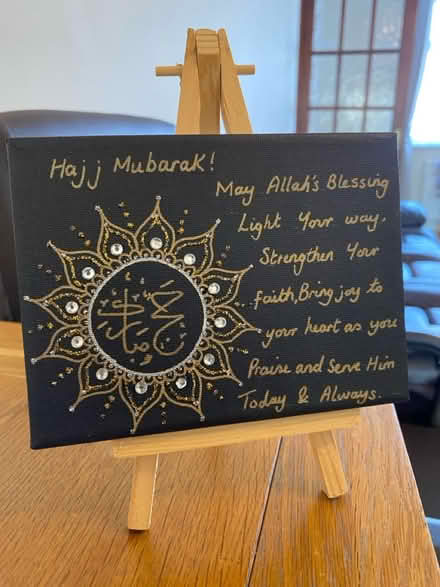 Hajj Mubarak!
حج مبارك
May Allah's Blessing
Light Your way.
Strengthen Your
faith, Bring joy to
your heart as you
Praise and Serve Him
Today & Always.